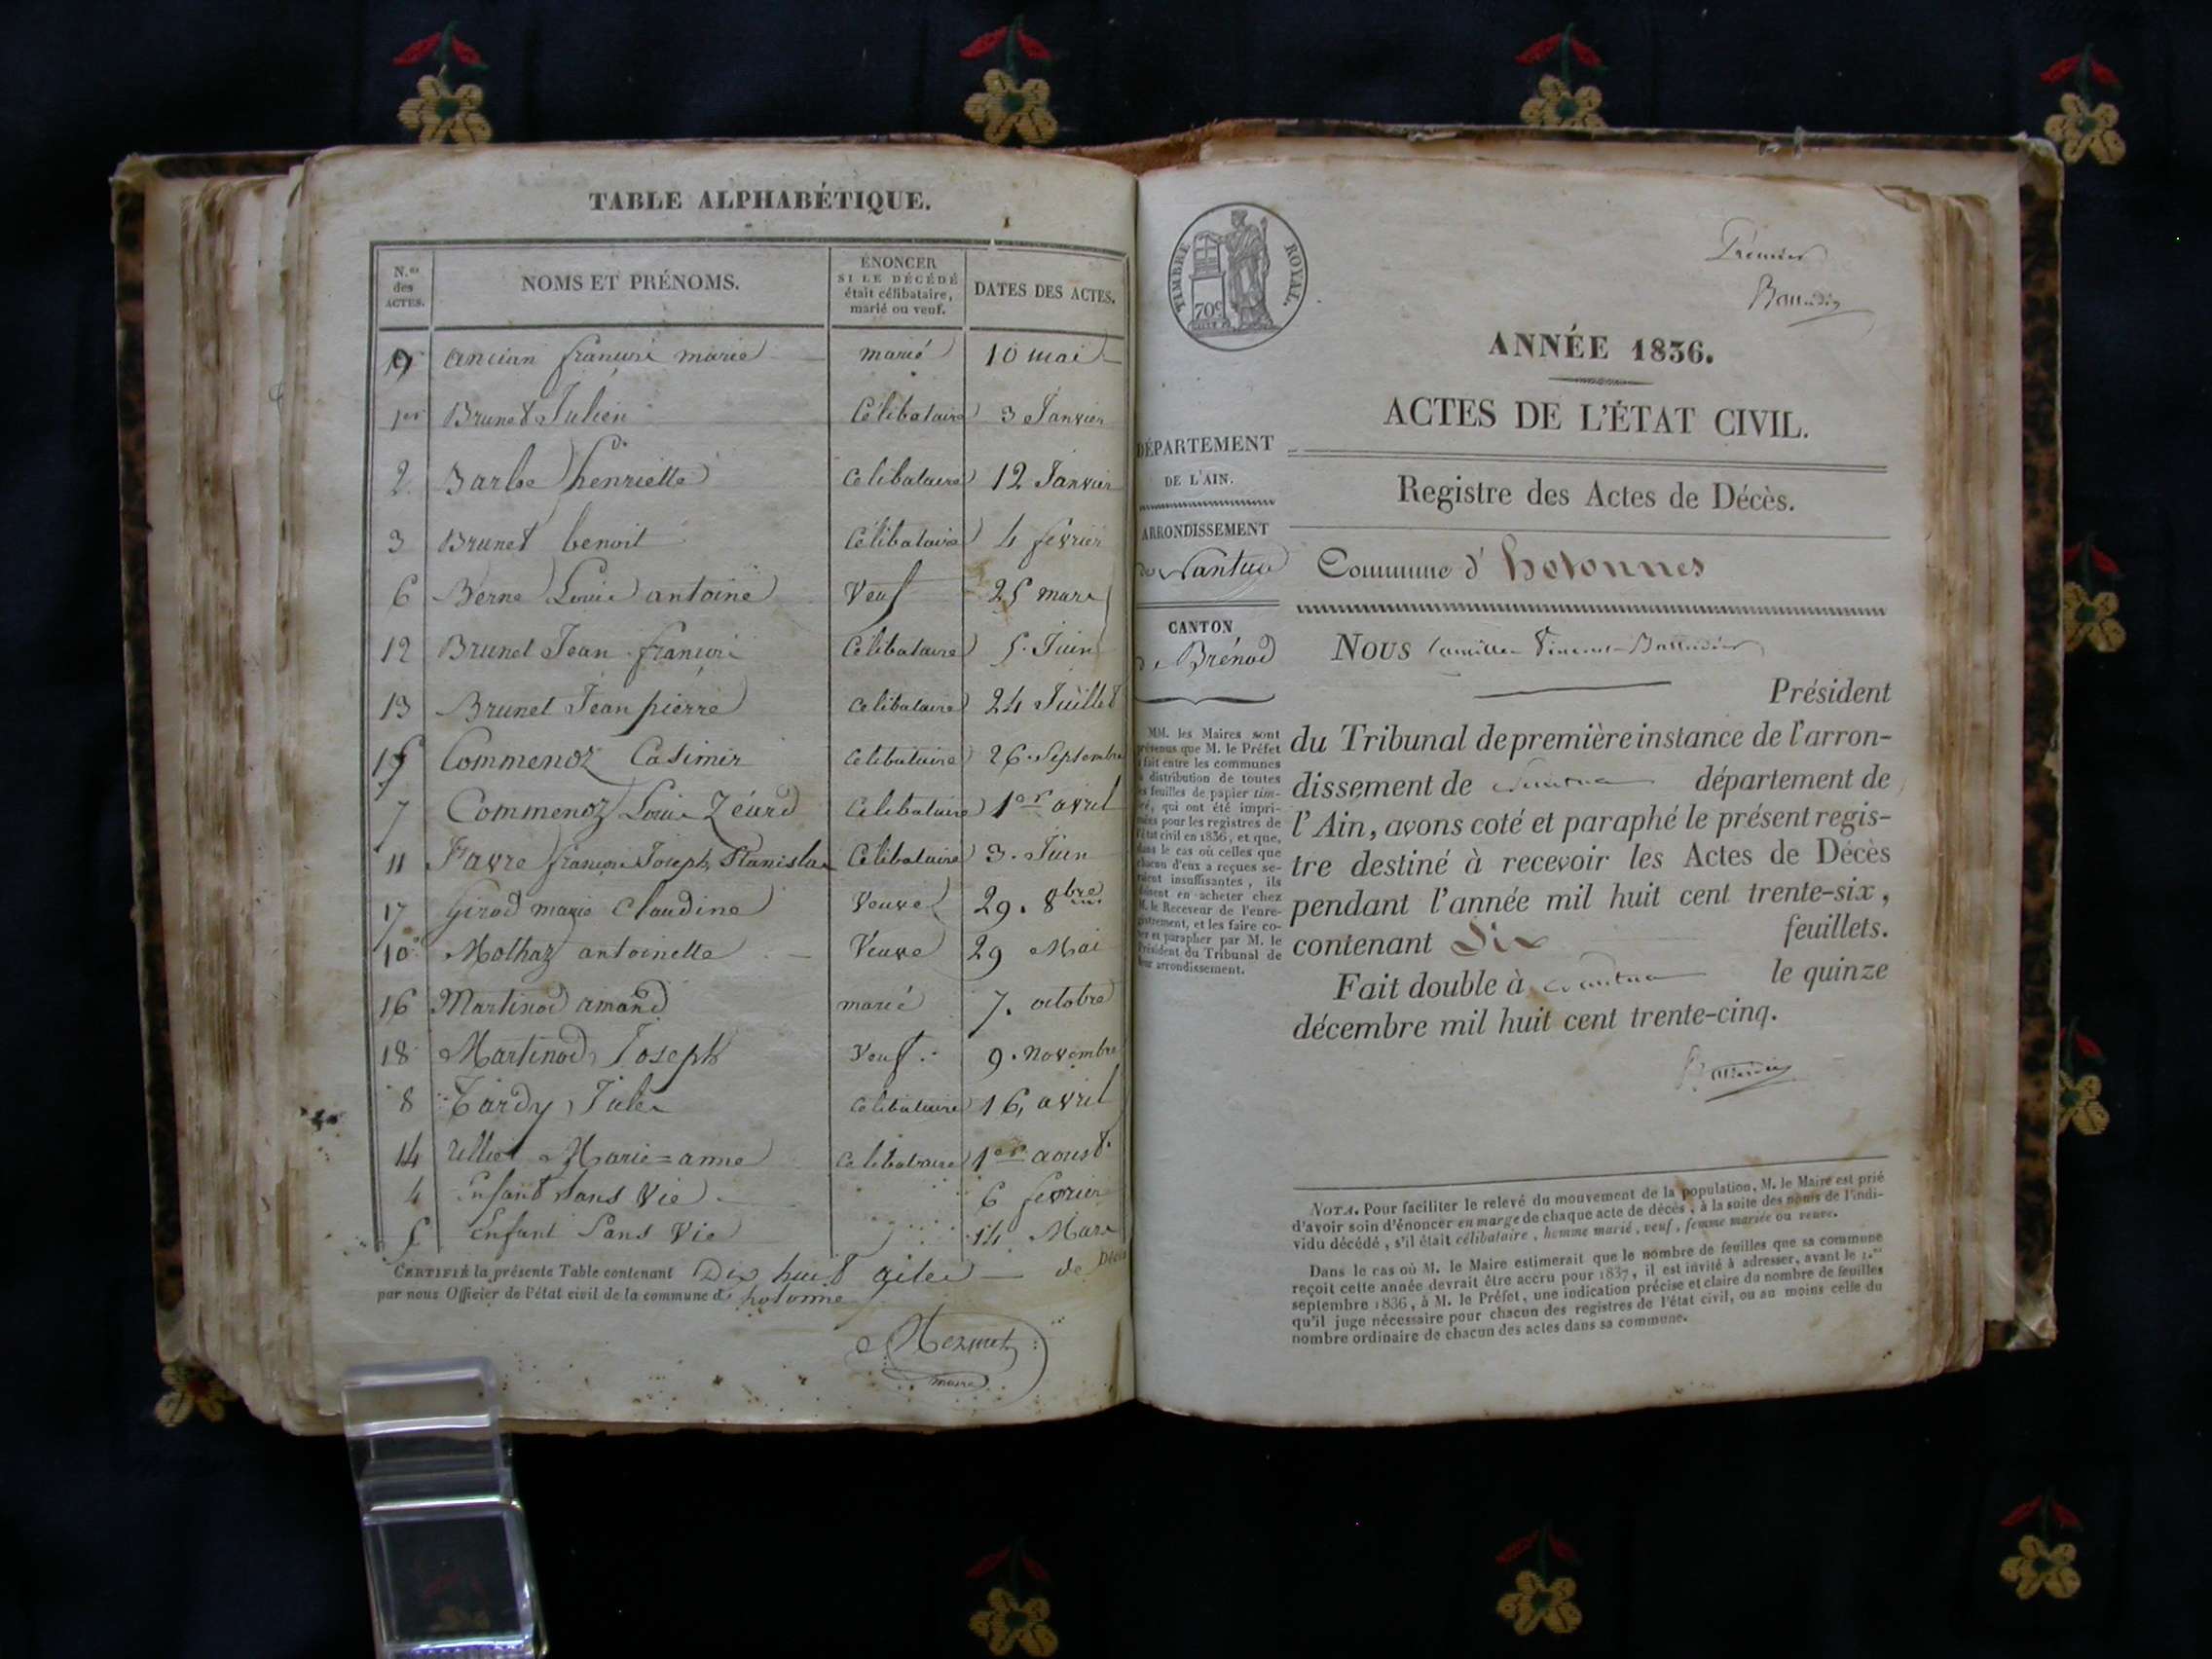 TABLE ALPHABÉTIQUE.
N.os des ACTES.
NOMS ET PRÉNOMS.
ÉNONCER SI LE DÉCÉDÉ était célibataire, marié ou veuf.
DATES DES ACTES.
9 ancian françois marie marié 10 mai
1er Brunet Julien Célibataire 3 Janvier
2 Barbe henriette Celibataire 12 Janvier
3 Brunet benoit Célibataire 4 fevrier
6 Berne Louis antoine Veuf 25 mars
12 Brunet Jean françois Célibataire 5. Juin
13 Brunet Jean pierre Celibataire 24 Juillet
15 Commenoz Casimir Celibataire 26. Septembre
7 Commenoz Louis Zéard Celibataire 1er avril
11 Favre françois Joseph Stanislas Célibataire 3. Juin
17 Girod marie Claudine Veuve 29. 8bre
10 Mothaz antoinette Veuve 29 Mai
16 Martinod amand marié 7. octobre
18 Martinod Joseph Veuf. 9. Novembre
8 Tardy Jules Celibataire 16, avril
14 Ulliet Marie=anne Celibataire 1er aoust
4 Enfant sans Vie 6 fevrier
5 Enfant Sans Vie 14 Mars
CERTIFIÉ la présente Table contenant Dix huit actes de Décès
par nous Officier de l'état civil de la commune d' hotonne
maire
TIMBRE ROYAL.
70c
Premier
ANNÉE 1836.
ACTES DE L'ÉTAT CIVIL.
DÉPARTEMENT
DE L'AIN.
Registre des Actes de Décès.
ARRONDISSEMENT
de Nantua
Commune d' hotonnes
CANTON
de Brénod
NOUS Camille Vincent
Président
du Tribunal de première instance de l'arron-
dissement de Nantua département de
l'Ain, avons coté et paraphé le présent regis-
tre destiné à recevoir les Actes de Décès
pendant l'année mil huit cent trente-six,
contenant Six feuillets.
Fait double à Nantua le quinze
décembre mil huit cent trente-cinq.
MM. les Maires sont
prévenus que M. le Préfet
a fait entre les communes
la distribution de toutes
les feuilles de papier tim-
bré, qui ont été impri-
mées pour les registres de
l'état civil en 1836, et que,
dans le cas où celles que
chacun d'eux a reçues se-
raient insuffisantes, ils
doivent en acheter chez
M. le Receveur de l'enre-
gistrement, et les faire co-
ter et parapher par M. le
Président du Tribunal de
leur arrondissement.
NOTA. Pour faciliter le relevé du mouvement de la population, M. le Maire est prié
d'avoir soin d'énoncer en marge de chaque acte de décès, à la suite des noms de l'indi-
vidu décédé, s'il était célibataire, homme marié, veuf, femme mariée ou veuve.
Dans le cas où M. le Maire estimerait que le nombre de feuilles que sa commune
reçoit cette année devrait être accru pour 1837, il est invité à adresser, avant le 1.er
septembre 1836, à M. le Préfet, une indication précise et claire du nombre de feuilles
qu'il juge nécessaire pour chacun des registres de l'état civil, ou au moins celle du
nombre ordinaire de chacun des actes dans sa commune.